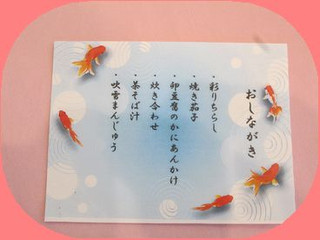 おしながき
・彩りちらし
・焼き茄子
・卵豆腐のかにあんかけ
・炊き合わせ
・茶そば汁
・吹雪まんじゅう